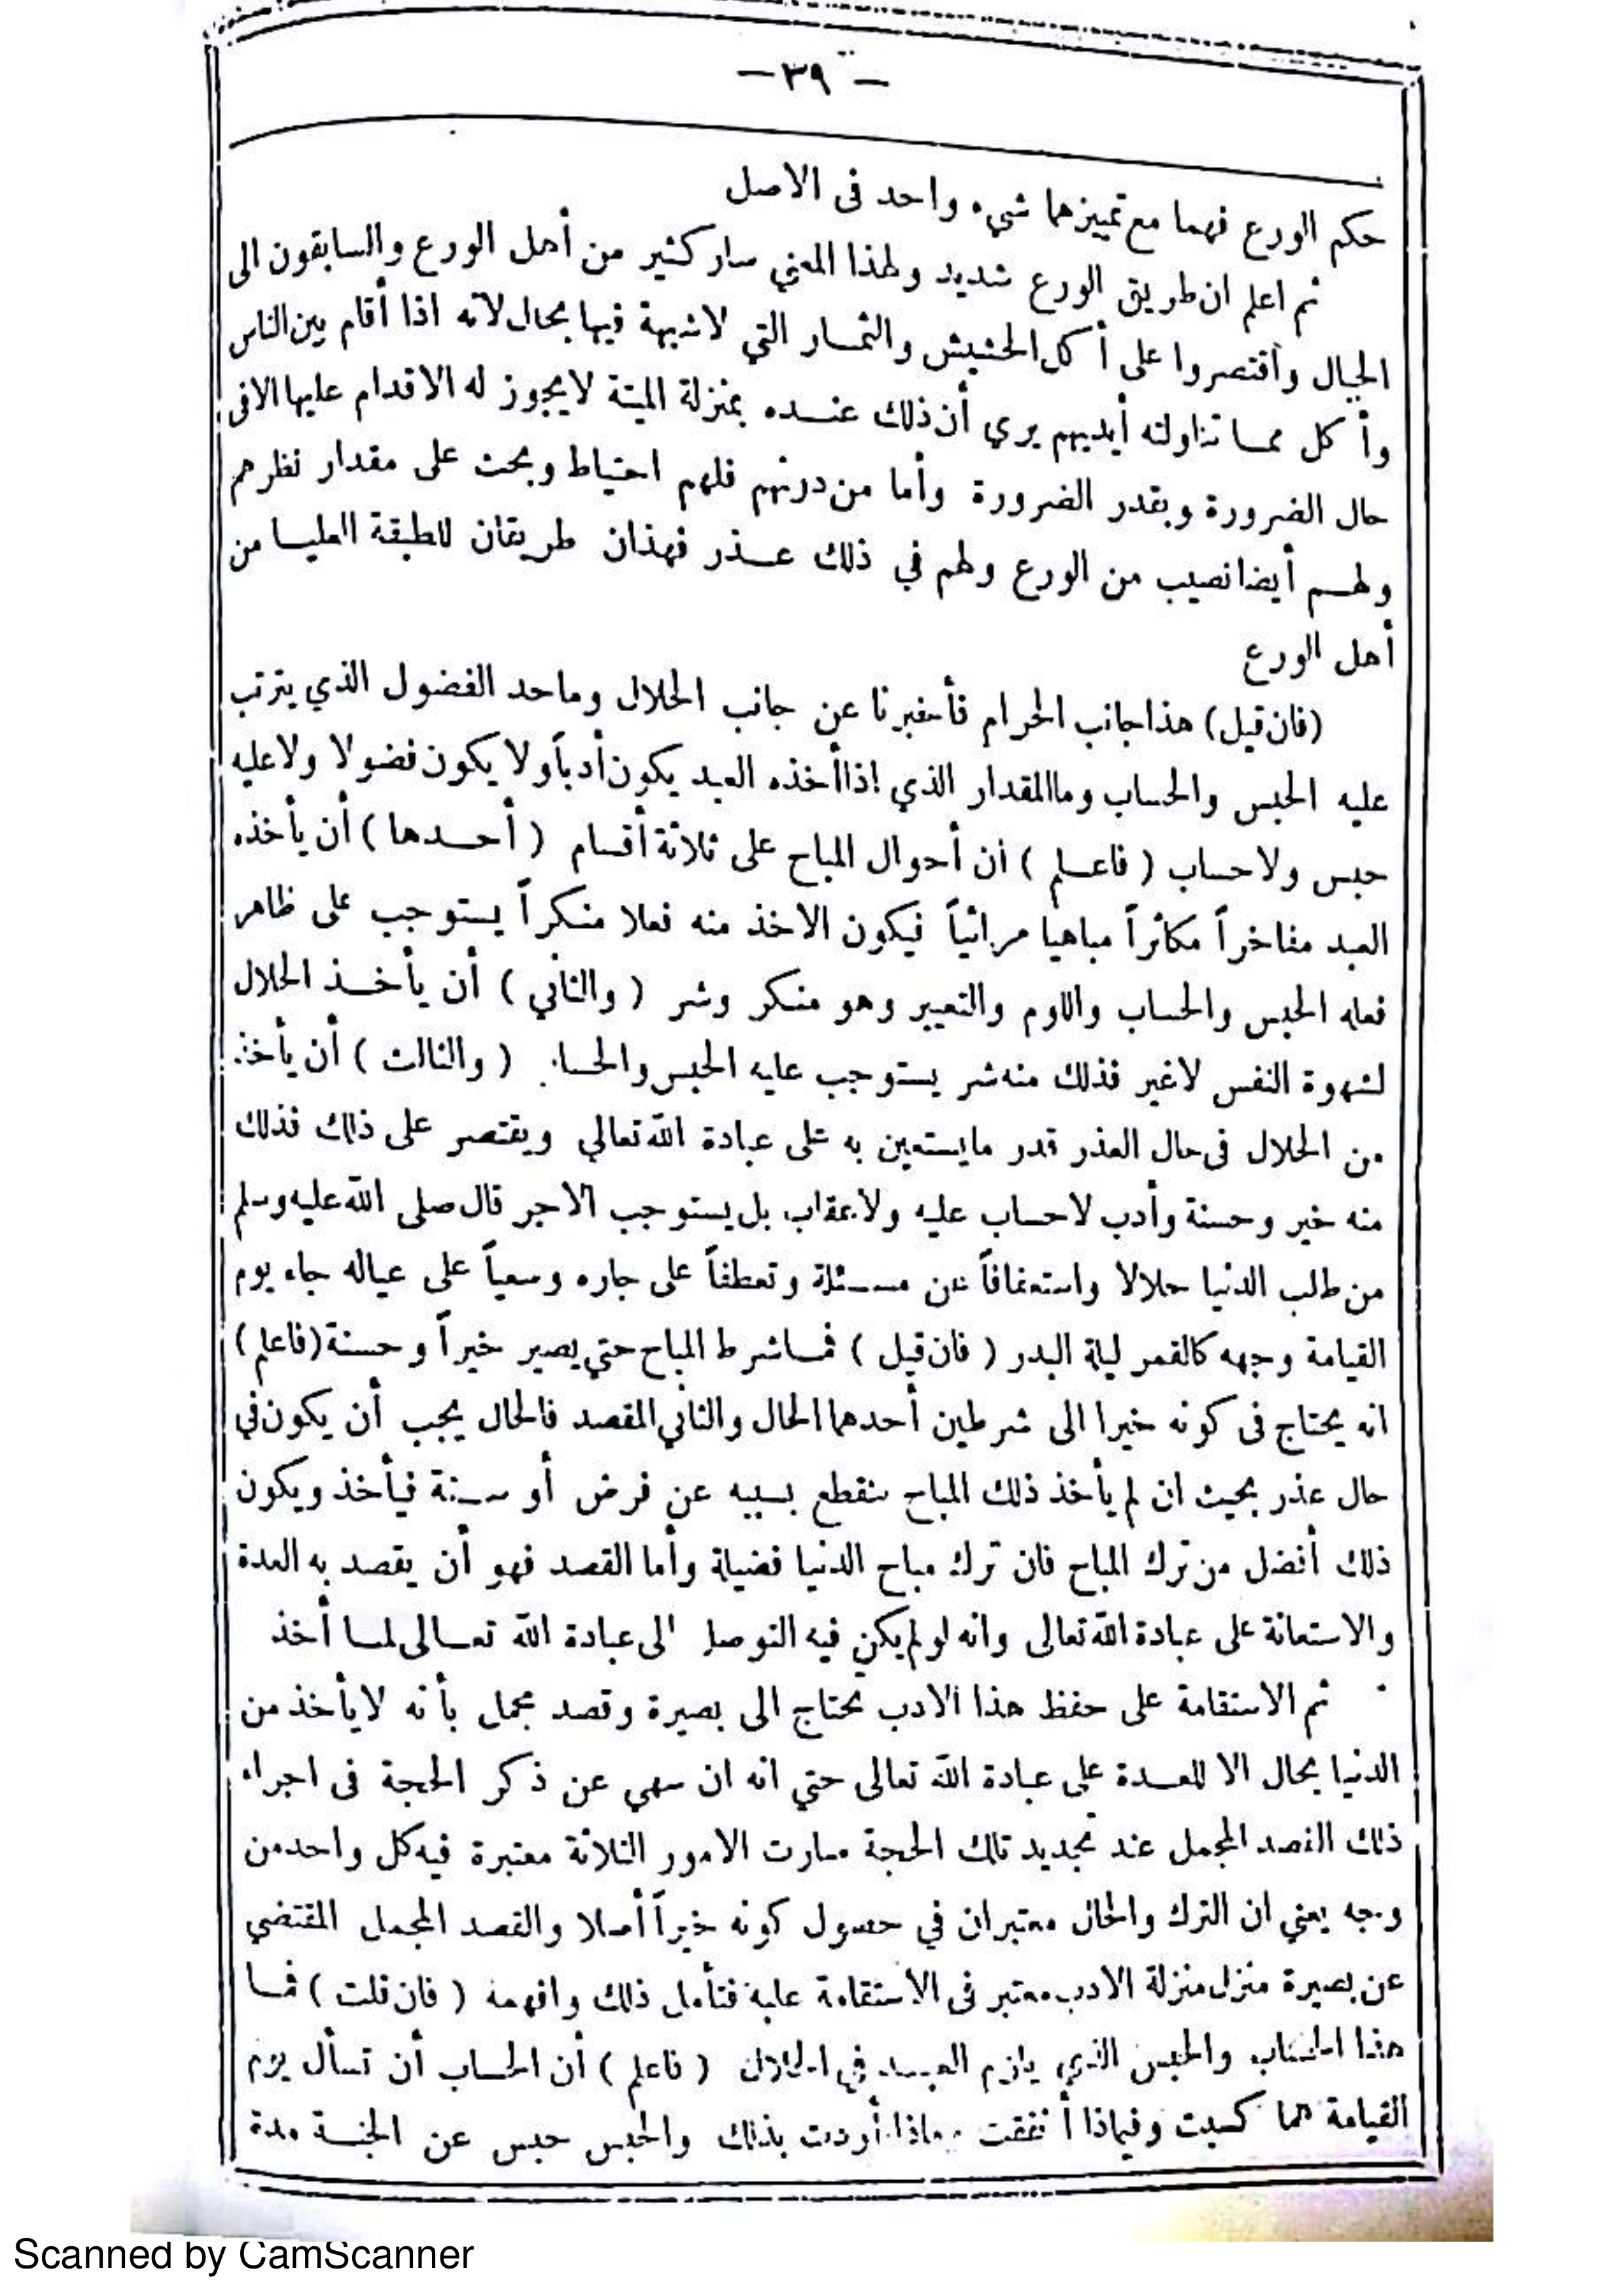 — ٣٩ —
حكم الورع فهما مع تمييزهما شيء واحد فى الاصل
ثم اعلم ان طريق الورع شديد ولهذا المعني سار كثير من أهل الورع والسابقون الى
الجبال واقتصروا على أكل الحشيش والثمار التي لا شبهة فيها بحال لانه اذا أقام بين الناس
وأكل مما تناولته أيديهم يري أن ذلك عنده بمنزلة الميتة لا يجوز له الاقدام عليها الا فى
حال الضرورة وبقدر الضرورة وأما من دونهم فلهم احتياط وبحث على مقدار نظرهم
ولهم أيضا نصيب من الورع ولهم في ذلك عذر فهذان طريقان للطبقة العليا من
أهل الورع
(فان قيل) هذا جانب الحرام فأخبرنا عن جانب الحلال وما حد الفضول الذي يترتب
عليه الحبس والحساب وما المقدار الذي اذا أخذه العبد يكون أدباً ولا يكون فضولا ولا عليه
حبس ولا حساب ( فاعلم ) ان أحوال المباح على ثلاثة أقسام ( أحدها ) أن يأخذه
العبد مفاخراً مكاثراً مباهيا مرائياً فيكون الاخذ منه فعلا منكراً يستوجب على ظاهر
فعله الحبس والحساب واللوم والتعيير وهو منكر وشر ( والثاني ) أن يأخذ الحلال
لشهوة النفس لا غير فذلك منه شر يستوجب عليه الحبس والحساب ( والثالث ) أن يأخذ
من الحلال فى حال العذر قدر ما يستعين به على عبادة الله تعالي ويقتصر على ذلك فذلك
منه خير وحسنة وأدب لا حساب عليه ولا عقاب بل يستوجب الاجر قال صلى الله عليه وسلم
من طلب الدنيا حلالا واستعفافاً عن مسئلة وتعطفاً على جاره وسعياً على عياله جاء يوم
القيامة وجهه كالقمر ليلة البدر ( فان قيل ) فما شرط المباح حتي يصير خيراً وحسنة (فاعلم)
انه يحتاج فى كونه خيرا الى شرطين أحدهما الحال والثاني المقصد فالحال يجب أن يكون في
حال عذر بحيث ان لم يأخذ ذلك المباح ينقطع بسببه عن فرض أو سنة فيأخذ ويكون
ذلك أفضل من ترك المباح فان ترك مباح الدنيا فضيلة وأما القصد فهو أن يقصد به العدة
والاستعانة على عبادة الله تعالى وانه لو لم يكن فيه التوصل الى عبادة الله تعالى لما أخذ
ثم الاستقامة على حفظ هذا الادب تحتاج الى بصيرة وقصد مجمل بأنه لا يأخذ من
الدنيا بحال الا للعدة على عبادة الله تعالى حتي انه ان سهي عن ذكر الحجة فى اجراء
ذلك القصد المجمل عند تجديد تلك الحجة صارت الامور الثلاثة معتبرة فيه كل واحد من
وجه يعني ان الترك والحال معتبران في حصول كونه خيراً أصلا والقصد المجمل المقتضي
عن بصيرة منزل منزلة الادب معتبر فى الاستقامة عليه فتأمل ذلك وافهمه ( فان قلت ) فما
هذا الحساب والحبس الذي يلزم العبد في الحلال ( فاعلم ) أن الحساب أن تسأل يوم
القيامة مما كسبت وفيماذا أنفقت وماذا أردت بذلك والحبس حبس عن الجنة مدة
Scanned by CamScanner